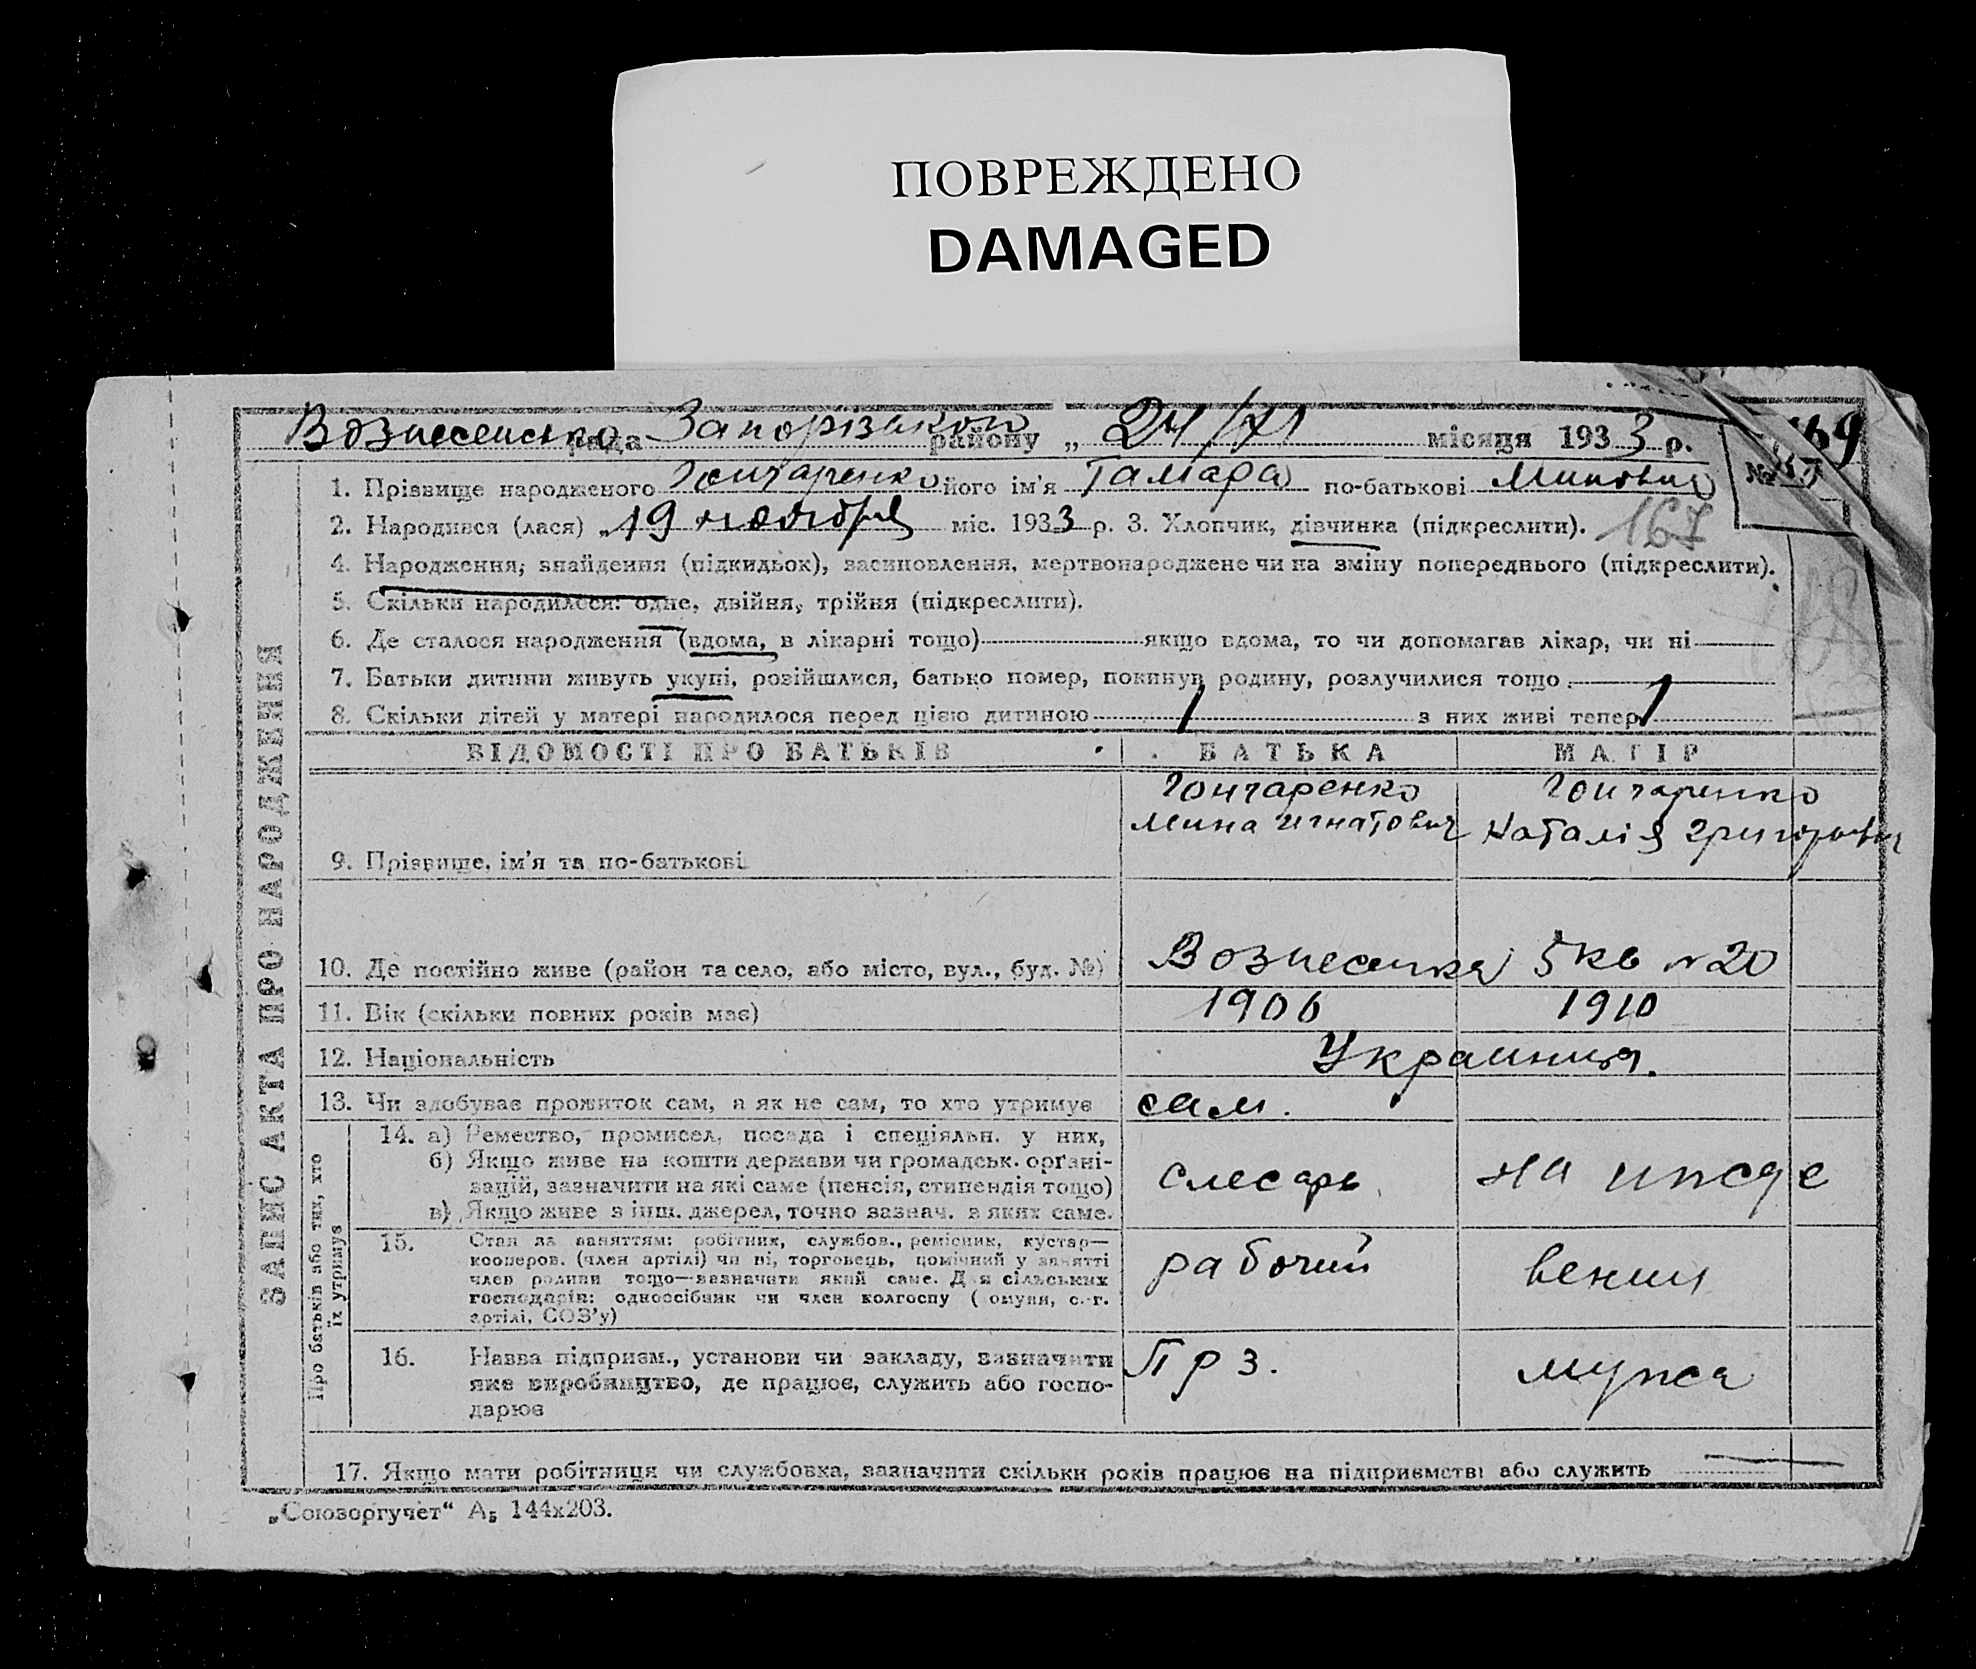 ПОВРЕЖДЕНО
DAMAGED
Вознесенська рада Запорізького району „ 24/XI місяця 1933 р.
169
№
1. Прізвище народженого Гончаренко його ім'я Тамара по-батькові Миновна
167
2. Народився (лася) „19 ноября міс. 1933 р. 3. Хлопчик, дівчинка (підкреслити).
4. Народження, знайдення (підкидьок), засиновлення, мертвонароджене чи на зміну попереднього (підкреслити).
5. Скільки народилося: одне, двійня, трійня (підкреслити).
6. Де сталося народження (вдома, в лікарні тощо) якщо вдома, то чи допомагав лікар, чи ні
7. Батьки дитини живуть укупі, розійшлися, батько помер, покинув родину, розлучилися тощо
8. Скільки дітей у матері народилося перед цією дитиною 1 з них живі тепер 1
ВІДОМОСТІ ПРО БАТЬКІВ БАТЬКА МАТІР
9. Прізвище, ім'я та по-батькові
Гончаренко Мина Игнатович
Гончаренко Наталія
10. Де постійно живе (район та село, або місто, вул., буд. №) Вознесенка 5 кв № 20
11. Вік (скільки повних років має) 1906 1910
12. Національність
13. Чи здобуває прожиток сам, а як не сам, то хто утримує сам.
14. а) Ремество, промисел, посада і спеціяльн. у них,
б) Якщо живе на кошти держави чи громадськ. органі-
зацій, зазначити на які саме (пенсія, стипендія тощо)
в) Якщо живе з інш. джерел, точно зазнач. з яких саме.
слесарь
на ижде
15. Стан за заняттям: робітник, службов., ремісник, кустар—
кооперов. (член артілі) чи ні, торговець, помічний у занятті
член родини тощо—зазначити який саме. Для сільських
господарів: одноосібник чи член колгоспу (комуни, с.-г.
артілі, СОЗ'у)
рабочий
вении
16. Назва підприєм., установи чи закладу, зазначити
яке виробництво, де працює, служить або госпо-
дарює
Прз.
мужа
17. Якщо мати робітниця чи службовка, зазначити скільки років працює на підприємстві або служить
ЗАПИС АКТА ПРО НАРОДЖЕННЯ
Про батьків або тих, хто
їх утримує
„Союзоргучет“ А₅ 144х203.